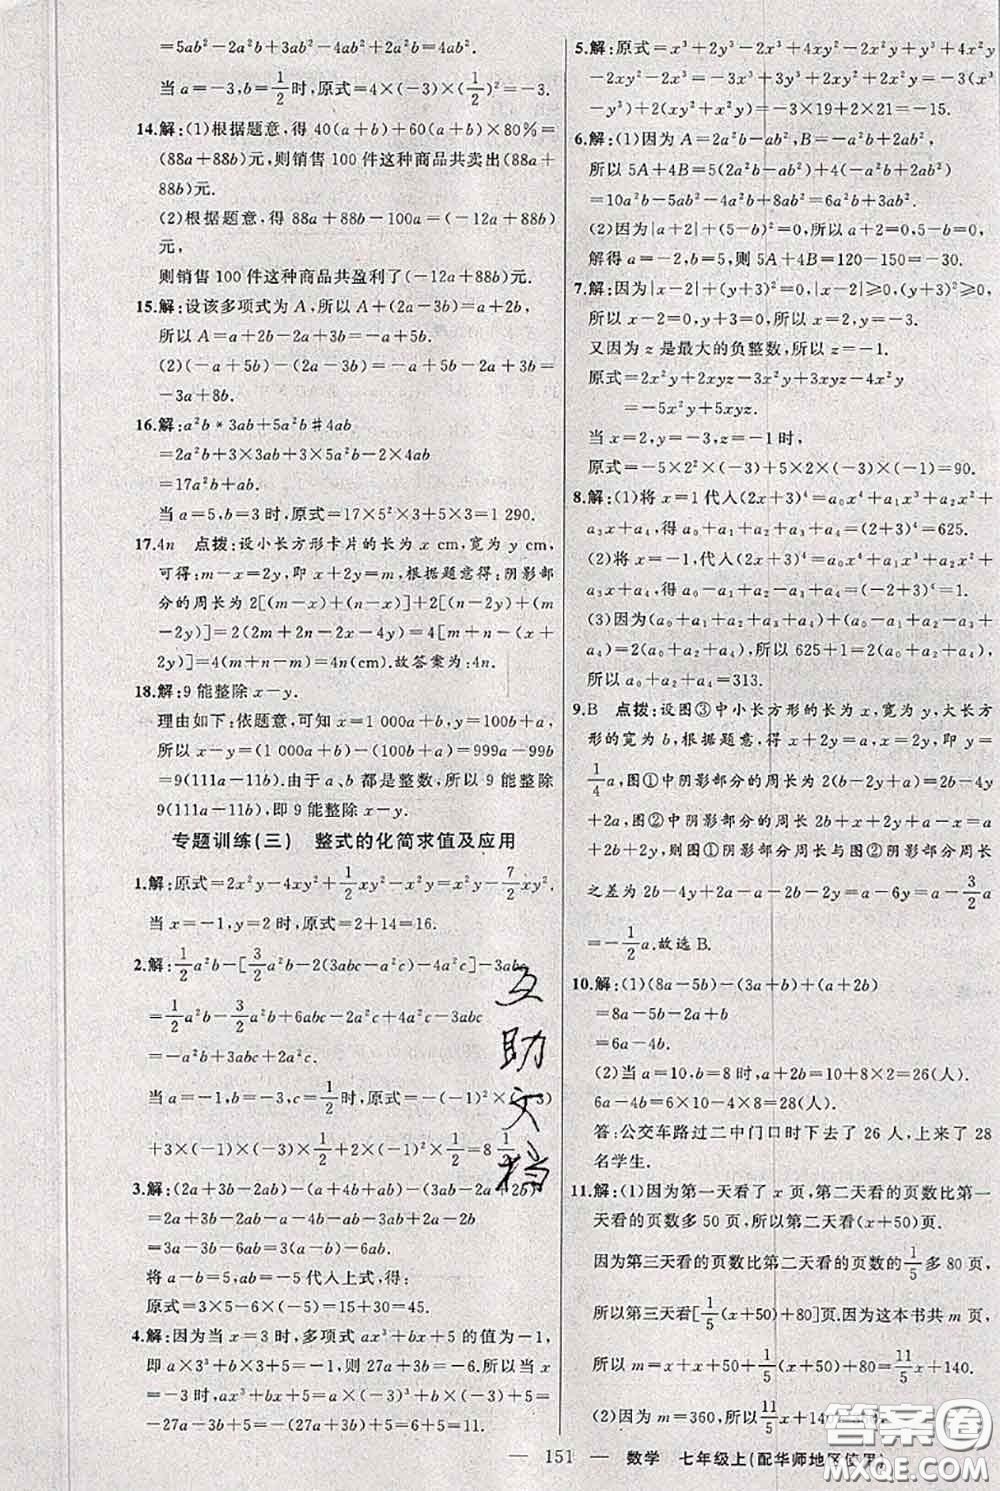 =5ab²-2a²b+3ab²-4ab²+2a²b=4ab².
当a=-3,b=1/2时,原式=4×(-3)×(1/2)²=-3.
14.解:(1)根据题意,得40(a+b)+60(a+b)×80%=
(88a+88b)元,则销售100件这种商品共卖出(88a+
88b)元.
(2)根据题意,得88a+88b-100a=(-12a+88b)
元,
则销售100件这种商品共盈利了(-12a+88b)元.
15.解:设该多项式为A,所以A+(2a-3b)=a+2b,
所以A=a+2b-2a+3b=-a+5b.
(2)(-a+5b)-(2a-3b)=-a+5b-2a+3b=
-3a+8b.
16.解:a²b*3ab+5a²b#4ab
=2a²b+3×3ab+3×5a²b-2×4ab
=17a²b+ab.
当a=5,b=3时,原式=17×5²×3+5×3=1 290.
17.4n 点拨:设小长方形卡片的长为x cm,宽为y cm,
可得:m-x=2y,即x+2y=m,根据题意得:阴影部
分的周长为2[(m-x)+(n-x)]+2[(n-2y)+(m
-2y)]=2(2m+2n-2x-4y)=4[m+n-(x+
2y)]=4(m+n-m)=4n(cm).故答案为:4n.
18.解:9能整除x-y.
理由如下:依题意,可知x=1 000a+b,y=100b+a,
所以x-y=(1 000a+b)-(100b+a)=999a-99b
=9(111a-11b).由于a、b都是整数,所以9能整除
9(111a-11b),即9能整除x-y.
专题训练(三) 整式的化简求值及应用
1.解:原式=2x²y-4xy²+1/2xy²-x²y=x²y-7/2xy².
当x=-1,y=2时,原式=2+14=16.
2.解:1/2a²b-[3/2a²b-2(3abc-a²c)-4a²c]-3abc
=1/2a²b-3/2a²b+6abc-2a²c+4a²c-3abc
=-a²b+3abc+2a²c.
当a=-1,b=-3,c=1/2时,原式=-(-1)²×(-3)
+3×(-1)×(-3)×1/2+2×(-1)²×1/2=8 1/2.
3.解:(2a+3b-2ab)-(a+4b+ab)-(3ab-2a+2b)
=2a+3b-2ab-a-4b-ab-3ab+2a-2b
=3a-3b-6ab
=3(a-b)-6ab.
将a-b=5,ab=-5代入上式,得:
原式=3×5-6×(-5)=15+30=45.
4.解:因为当x=3时,多项式ax³+bx+5的值为-1,
即a×3³+b×3+5=-1,则27a+3b=-6.所以当x
=-3时,ax³+bx+5=a×(-3)³+b×(-3)+5=
-27a-3b+5=-(27a+3b)+5=6+5=11.
5.解:原式=x³+2y³-2x³+4xy-2x²y+y³+4x²y
-2xy²-2x³=-3x³+3y³+2x²y+4xy-2xy²=-3(x³
-y³)+2(xy²+x²y)=-3×19+2×21=-15.
6.解:(1)因为A=2a²b-ab²,B=-a²b+2ab²,
所以5A+4B=5(2a²b-ab²)+4(-a²b+2ab²)
=10a²b-5ab²-4a²b+8ab²=6a²b+3ab².
(2)因为|a+2|+(5-b)²=0,所以a+2=0,5-b=0,
解得a=-2,b=5,则5A+4B=120-150=-30.
7.解:因为|x-2|+(y+3)²=0,|x-2|≥0,(y+3)²≥0,
所以x-2=0,y+3=0,所以x=2,y=-3.
又因为z是最大的负整数,所以z=-1.
原式=2x²y+x²y-2xyz-3x²y+7xyz-4x²y
=-5x²y+5xyz.
当x=2,y=-3,z=-1时,
原式=-5×2²×(-3)+5×2×(-3)×(-1)=90.
8.解:(1)将x=1代入(2x+3)⁴=a₀x⁴+a₁x³+a₂x²+
a₃x+a₄,得a₀+a₁+a₂+a₃+a₄=(2+3)⁴=625.
(2)将x=-1,代入(2x+3)⁴=a₀x⁴+a₁x³+a₂x²+
a₃x+a₄,得a₀-a₁+a₂-a₃+a₄=(-2+3)⁴=1.
(3)因为(a₀+a₁+a₂+a₃+a₄)+(a₀-a₁+a₂-
a₃+a₄)=2(a₀+a₂+a₄),所以625+1=2(a₀+
a₂+a₄),所以a₀+a₂+a₄=313.
9.B 点拨:设图③中小长方形的长为x,宽为y,大长方
形的宽为b,根据题意,得x+2y=a,x=2y,即y=
1/4a,图①中阴影部分的周长为2(b-2y+a)=2b-4y
+2a,图②中阴影部分的周长2b+x+2y+a-x=a+
2b+2y,则图①阴影部分周长与图②阴影部分周长
之差为2b-4y+2a-a-2b-2y=a-6y=a-3/2a
=-1/2a.故选B.
10.解:(1)(8a-5b)-(3a+b)+(a+2b)
=8a-5b-2a+b
=6a-4b.
(2)当a=10,b=8时,a+2b=10+2×8=26(人).
6a-4b=6×10-4×8=28(人).
答:公交车路过二中门口时下去了26人,上来了28
名学生.
11.解:(1)因为第一天看了x页,第二天看的页数比第一
天看的页数多50页,所以第二天看(x+50)页.
因为第三天看的页数比第二天看的页数的1/5多80页,
所以第三天看[1/5(x+50)+80]页.因为这本书共m页,
所以m=x+(x+50)+1/5(x+50)+80=11/5x+140.
(2)因为m=360,所以11/5x+140=360,
互助文档
— 151 — 数学 七年级上(配华师地区使用)
答案圈
MXQE.COM